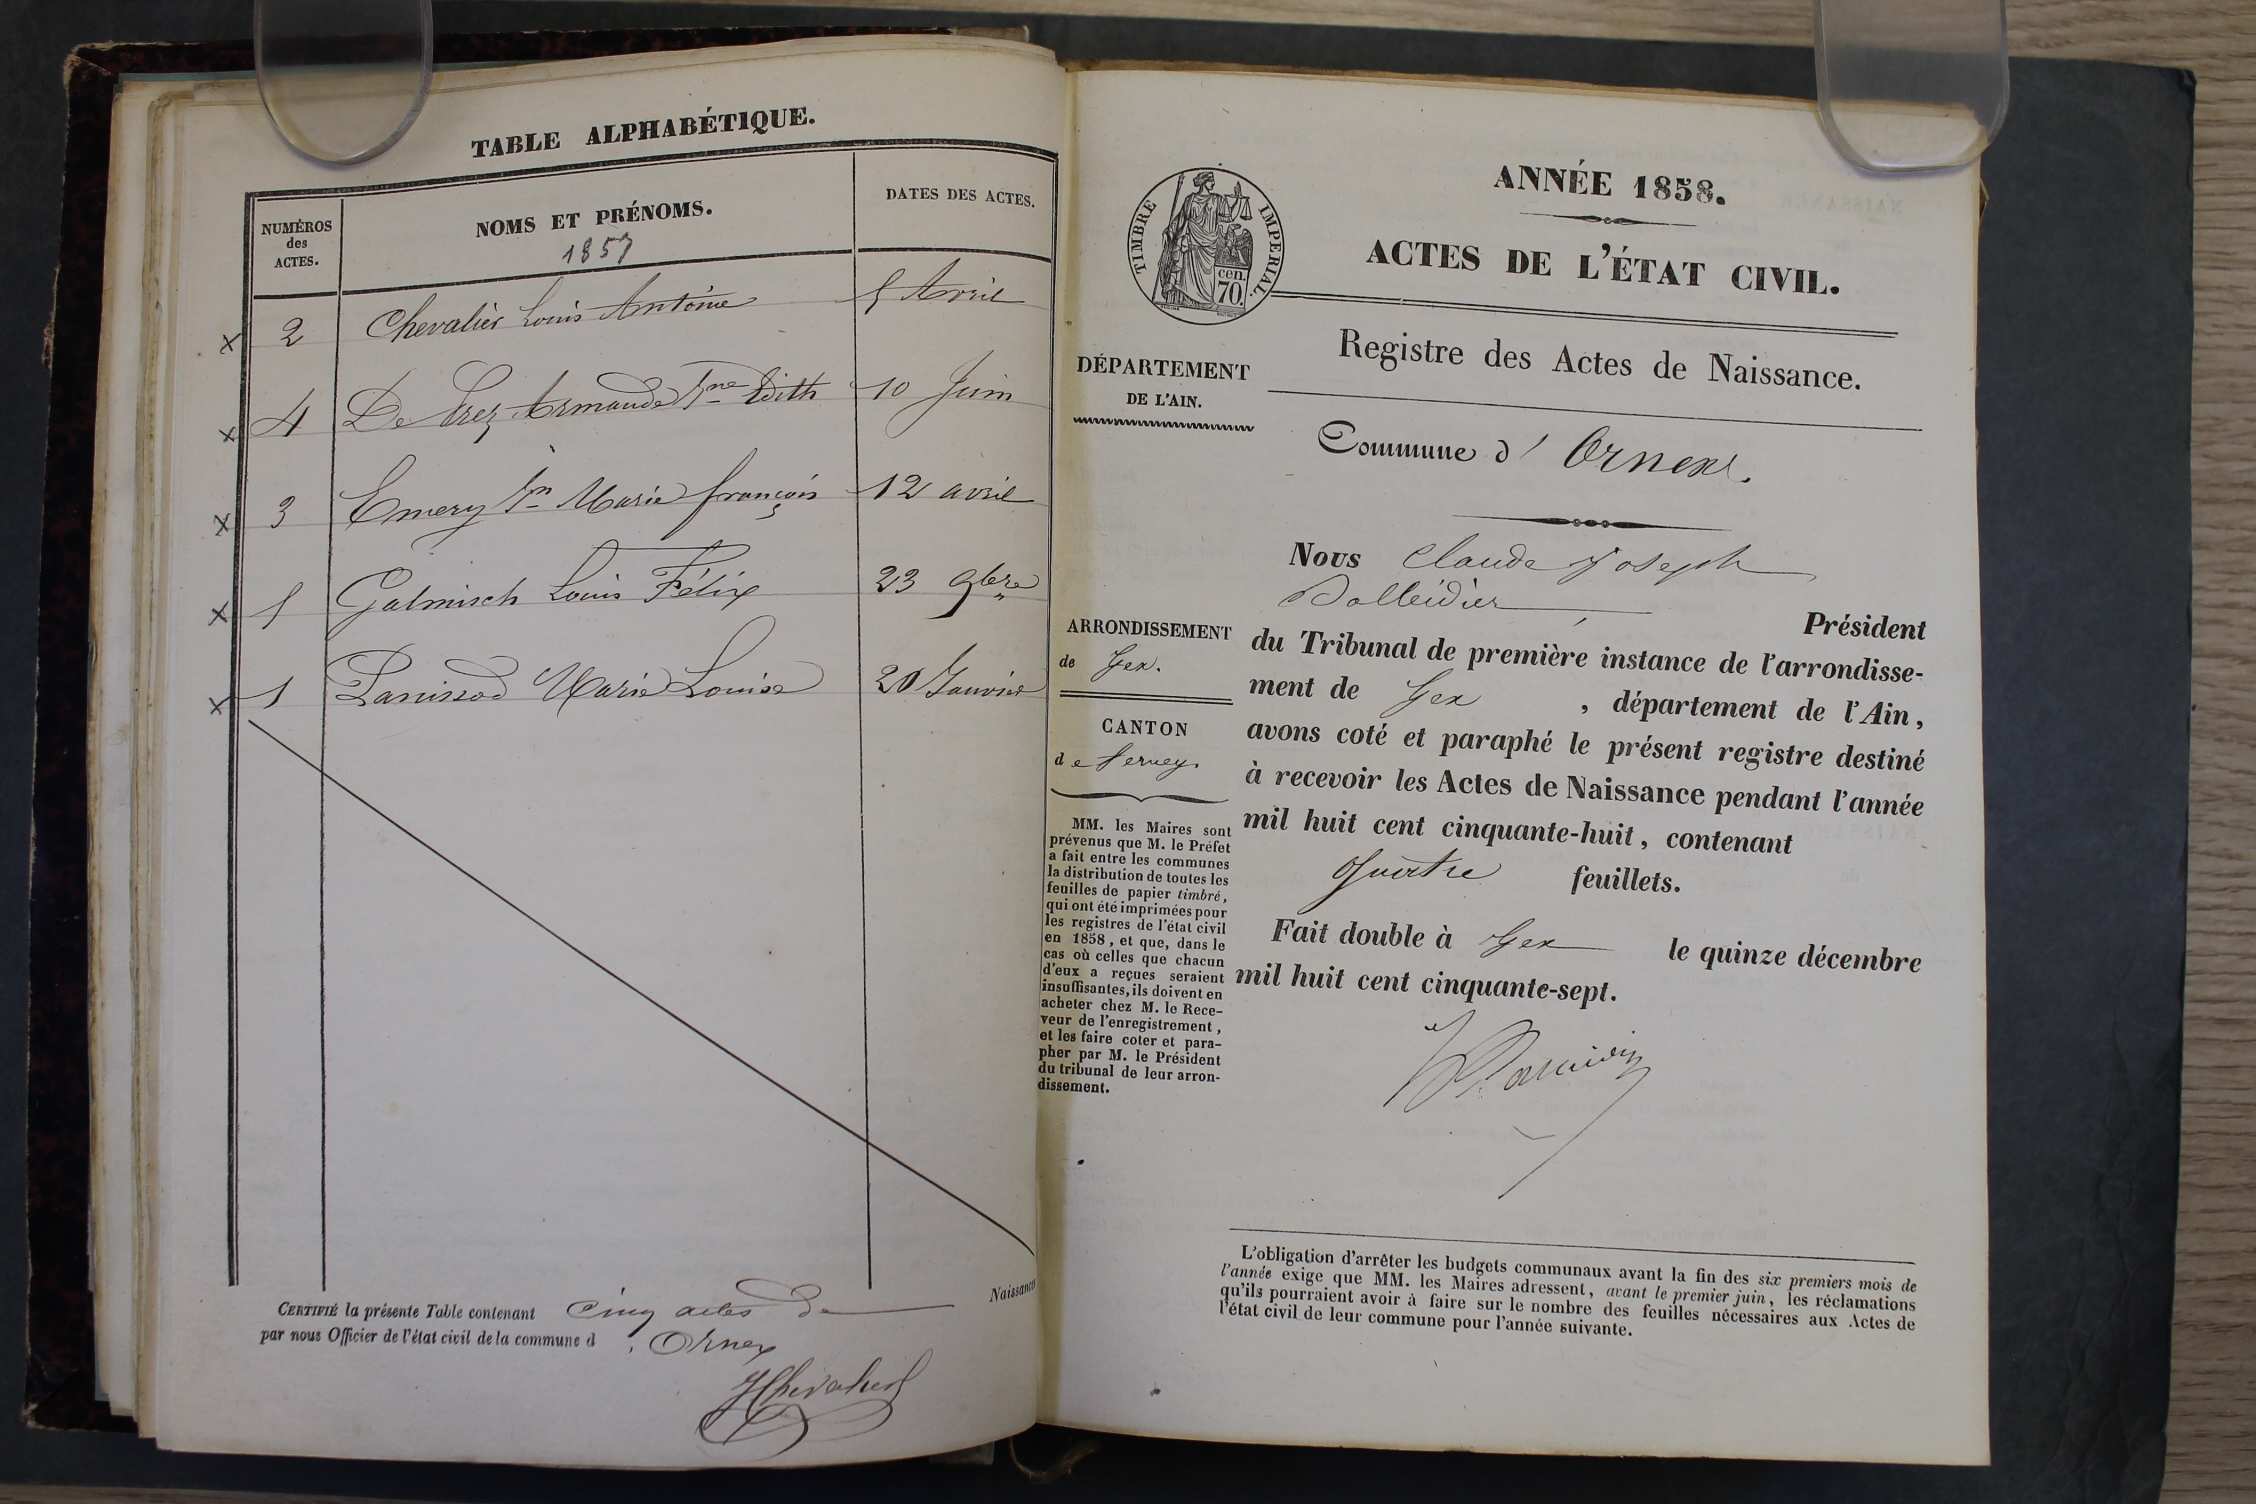 TABLE ALPHABÉTIQUE.
NUMÉROS des ACTES.
NOMS ET PRÉNOMS.
1857
DATES DES ACTES.
x 2 Chevalier Louis Antoine 5 Avril
x 4 De Prez Armande Jne Edith 10 Juin
x 3 Emery Jn Marie françois 12 avril
x 5 Galmisch Louis Félix 23 9bre
x 1 Panissod Marie Louise 20 Janvier
Naissances
CERTIFIÉ la présente Table contenant Cinq actes de
par nous Officier de l'état civil de la commune d'Ornex
JChevalier
TIMBRE IMPERIAL.
cen.
70.
ANNÉE 1858.
ACTES DE L'ÉTAT CIVIL.
DÉPARTEMENT
DE L'AIN.
Registre des Actes de Naissance.
Commune d'Ornex.
ARRONDISSEMENT
de Gex.
CANTON
de Ferney.
MM. les Maires sont
prévenus que M. le Préfet
a fait entre les communes
la distribution de toutes les
feuilles de papier timbré,
qui ont été imprimées pour
les registres de l'état civil
en 1858, et que, dans le
cas où celles que chacun
d'eux a reçues seraient
insuffisantes, ils doivent en
acheter chez M. le Rece-
veur de l'enregistrement,
et les faire coter et para-
pher par M. le Président
du tribunal de leur arron-
dissement.
Nous Claude Joseph
Président
du Tribunal de première instance de l'arrondisse-
ment de Gex, département de l'Ain,
avons coté et paraphé le présent registre destiné
à recevoir les Actes de Naissance pendant l'année
mil huit cent cinquante-huit, contenant
Quatre feuillets.
Fait double à Gex le quinze décembre
mil huit cent cinquante-sept.
L'obligation d'arrêter les budgets communaux avant la fin des six premiers mois de
l'année exige que MM. les Maires adressent, avant le premier juin, les réclamations
qu'ils pourraient avoir à faire sur le nombre des feuilles nécessaires aux Actes de
l'état civil de leur commune pour l'année suivante.